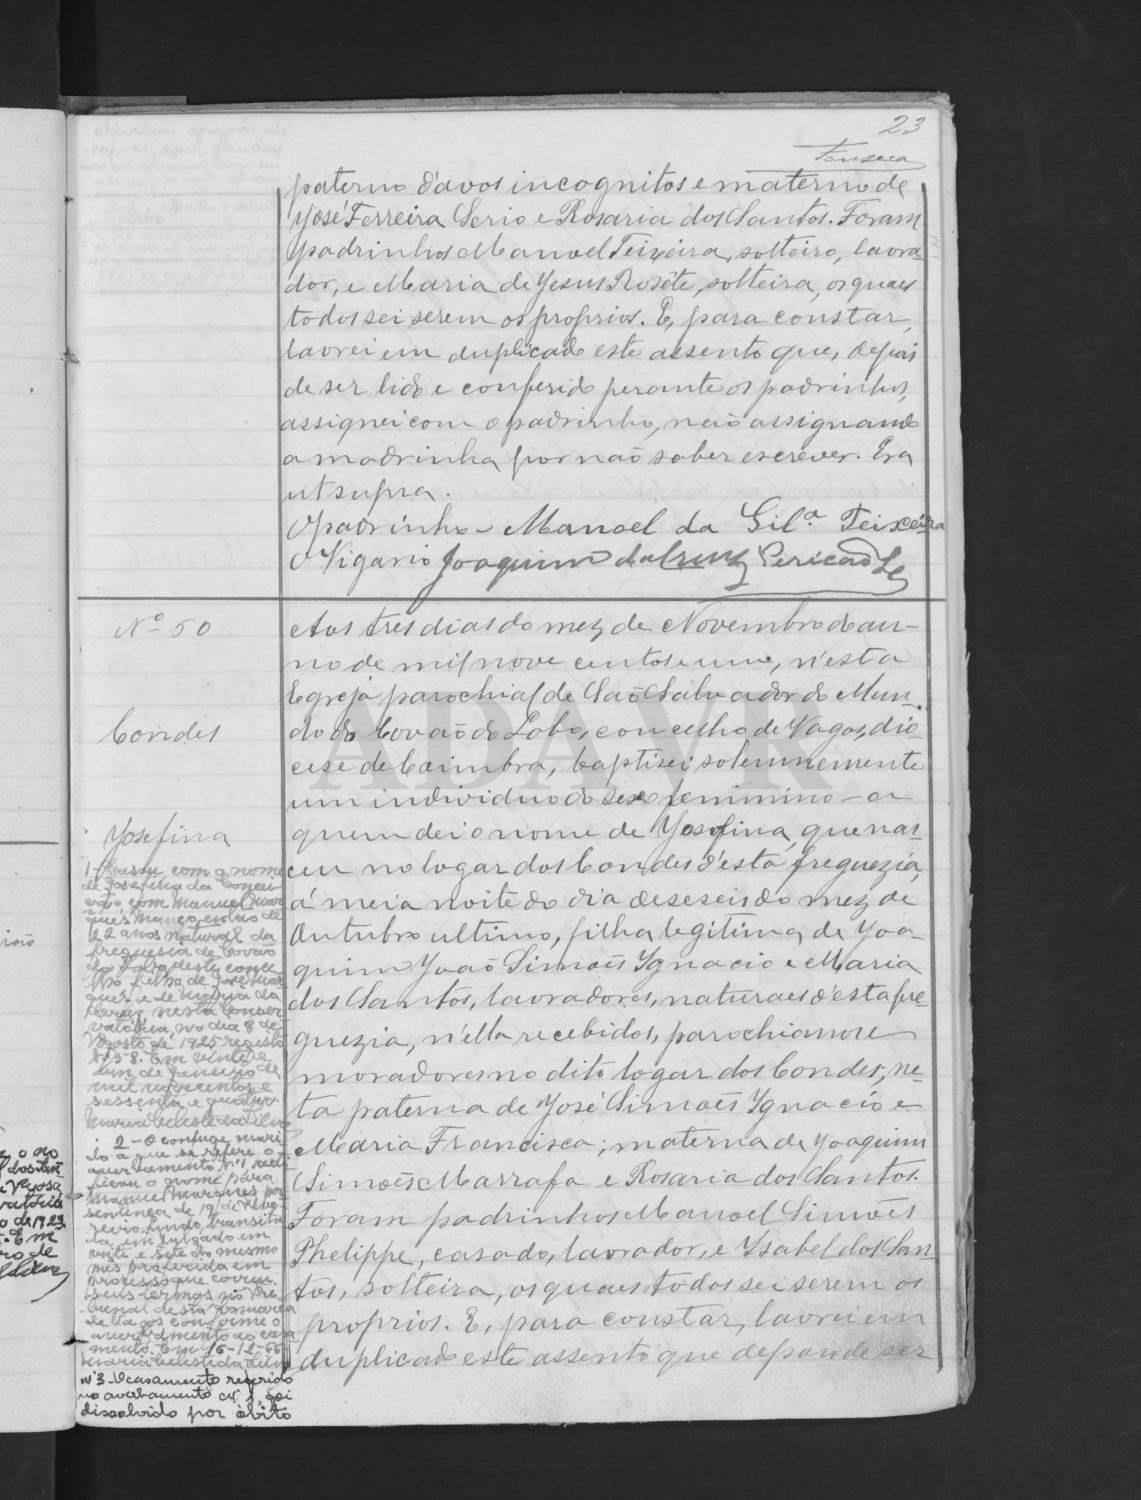 23
Fonseca
paterno d'avos incognitos e materno de
José Ferreira Serio e Rosaria dos Santos. Foram
padrinhos Manoel Teixeira, solteiro, lavra
dor, e Maria de Jesus Rosête, solteira, os quaes
todos sei serem os proprios. E, para constar,
lavrei em duplicado este assento que, depois
de ser lido e conferido perante os padrinhos,
assignei com o padrinho, não assignando
a madrinha por não saber escrever. Era
ut supra.
O padrinho - Manoel da Silª Teixeira
O Vigario Joaquim da Cruz Pericão
Nº 50
Condes
Josefina
Aos tres dias do mez de Novembro do an-
no de mil nove centos e um, n'esta
Egreja parochial de São Salvador do Mun-
do do Covão do Lobo, concelho de Vagos, dio
cese de Coimbra, baptisei solemnemente
um individuo do sexo feminino - a
quem dei o nome de Josefina, que nas-
ceu no logar dos Condes d'esta freguezia,
á meia noite do dia deseseis do mez de
Outubro ultimo, filha legitima de Joa-
quim João Simões Ignacio e Maria
dos Santos, lavradores, naturaes d'esta fre-
guezia, n'ella recebidos, parochianos e
moradores no dito logar dos Condes, ne-
ta paterna de José Simões Ignacio e
Maria Francisca; materna de Joaquim
Simões Marrafa e Rosaria dos Santos.
Foram padrinhos Manoel Simões
Phelippe, casado, lavrador, e Isabel dos San-
tos, solteira, os quaes todos sei serem os
proprios. E, para constar, lavrei em
duplicado este assento que depois de ser
1- Casou com o nome
de Josefina da Concei
ção, com Manuel Mar
ques Manço, viuvo de
22 anos natural da
freguesia de Covão
do Lobo deste conce
lho filho de José Mar
ques e de Maria da
nesta Conser
vatória, no dia 8 de
Agosto de 1925 registo
Nº 58. Em vinte e
um de Janeiro de
mil novecentos e
sessenta e quatro.
Maria Celeste da Silva
2 - O conjuge mari
do a que se refere o
averbamento Nº 1 recti
ficou o nome para
Manuel Marques por
sentença de 19 de Feve
reiro findo, transita
da em julgado em
vinte e sete do mesmo
mês proferida em
processo que correu
seus termos no Tri
bunal desta comarca
de Vagos conforme o
averbamento ao casa
mento. Em 16-12-66
Maria Celeste da Silva
Nº 3 - O casamento referido
no averbamento nº 1, foi
dissolvido por óbito
ADAVR